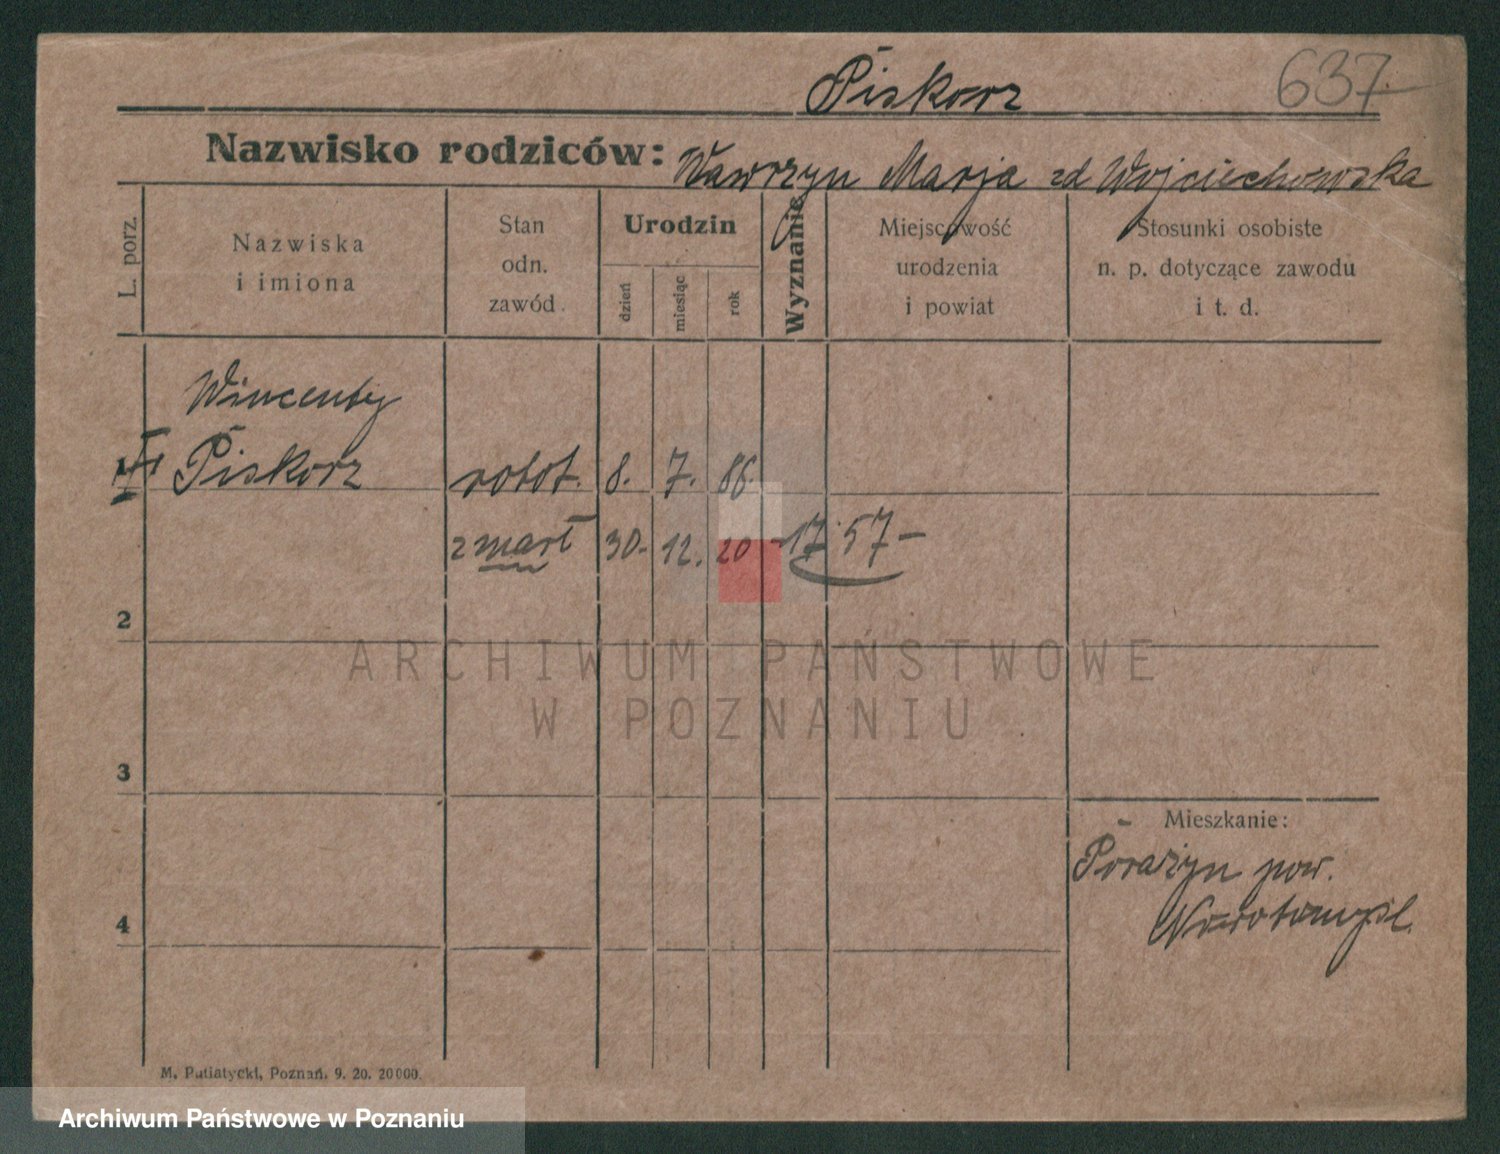 Piskorz
637
Nazwisko rodziców: Wawrzyn Marja zd Wojciechowska
L. porz.
Nazwiska
i imiona
Stan
odn.
zawód.
Urodzin
dzień
miesiąc
rok
Wyznanie
Miejscowość
urodzenia
i powiat
Stosunki osobiste
n. p. dotyczące zawodu
i t. d.
Wincenty
Piskorz robot. 8. 7. 86.
zmarł 30. 12. 20 -17 57-
2
ARCHIWUM PAŃSTWOWE
W POZNANIU
3
Mieszkanie:
Porażyn pow.
Nowotomysl.
4
M. Putiatycki, Poznań. 9. 20. 20000.
Archiwum Państwowe w Poznaniu